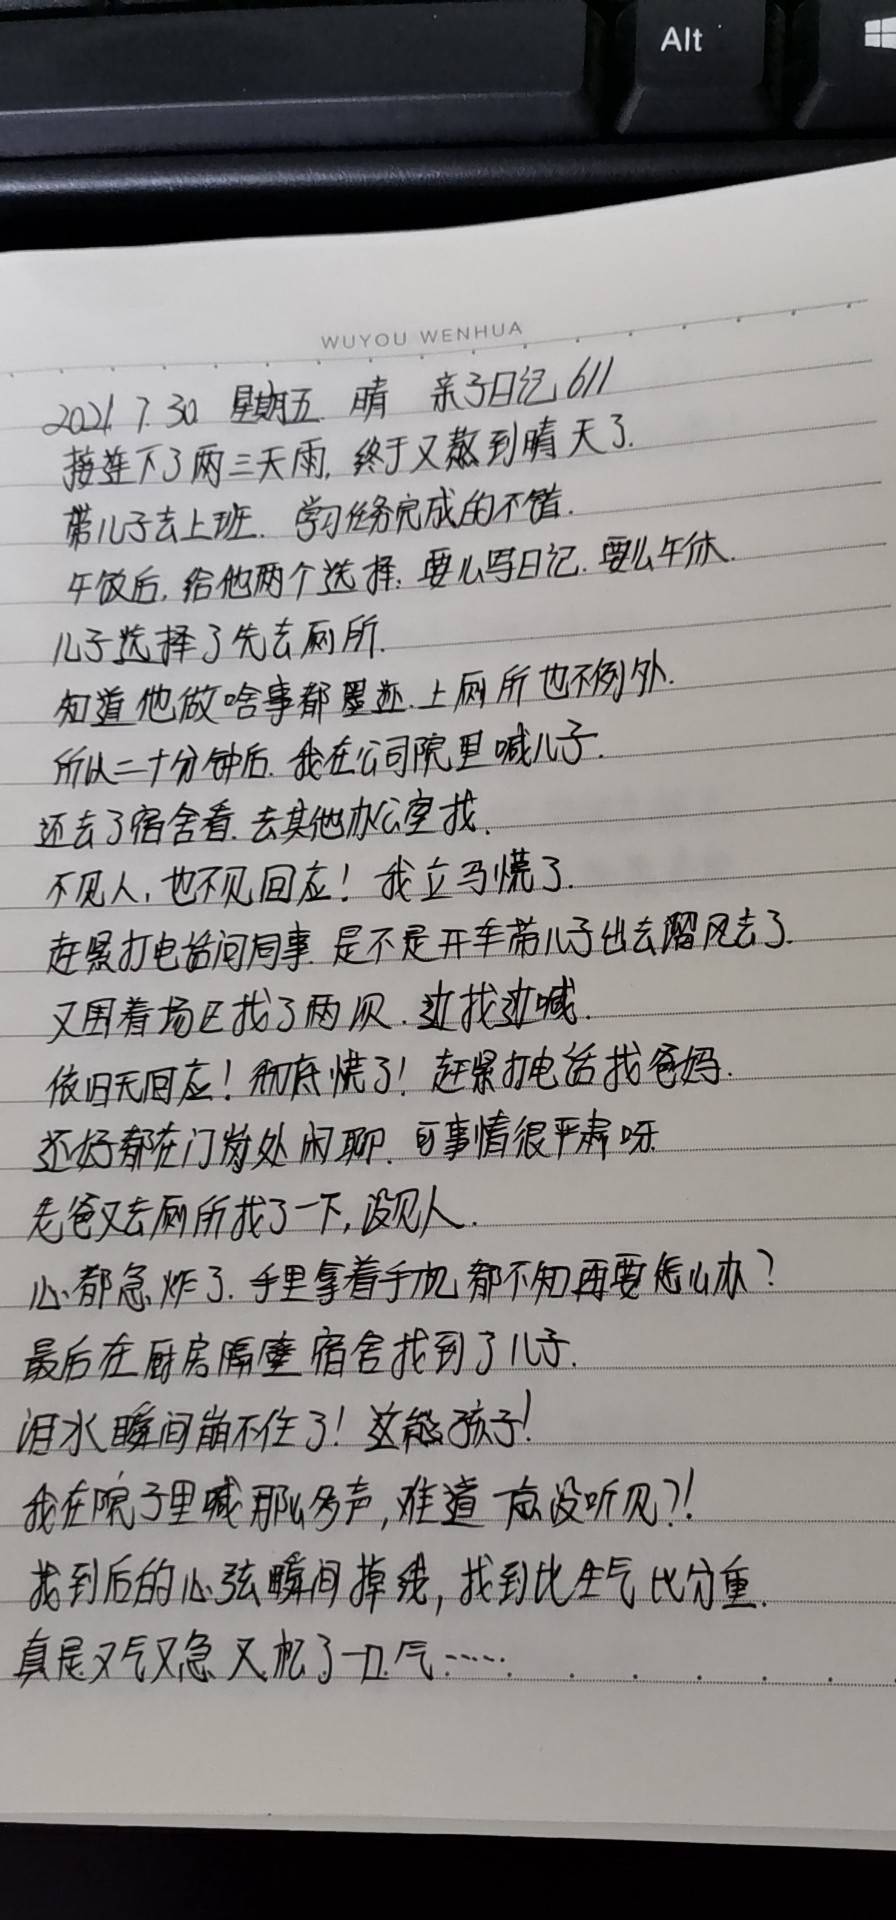 Alt
WUYOU WENHUA
2021.7.30 星期五 晴 亲子日记611
接连下了两三天雨,终于又熬到晴天了.
带儿子去上班.学习任务完成的不错.
午饭后,给他两个选择:要么写日记.要么午休.
儿子选择了先去厕所.
知道他做啥事都墨迹.上厕所也不例外.
所以二十分钟后.我在公司院里喊儿子.
还去了宿舍看.去其他办公室找.
不见人,也不见回应!我立马慌了.
赶紧打电话问同事.是不是开车带儿子出去溜风去了.
又围着场区找了两圈.边找边喊.
依旧无回应!彻底慌了!赶紧打电话找爸妈.
还好都在门岗处闲聊.可事情很严肃呀
老爸又去厕所找了一下,没见人.
心都急炸了.手里拿着手机都不知再要怎么办?
最后在厨房隔壁宿舍找到了儿子.
泪水瞬间崩不住了!这熊孩子!
我在院子里喊那么多声,难道一点没听见?!
找到后的心弦瞬间掉线,找到比生气比分重.
真是又气又急又松了一口气……